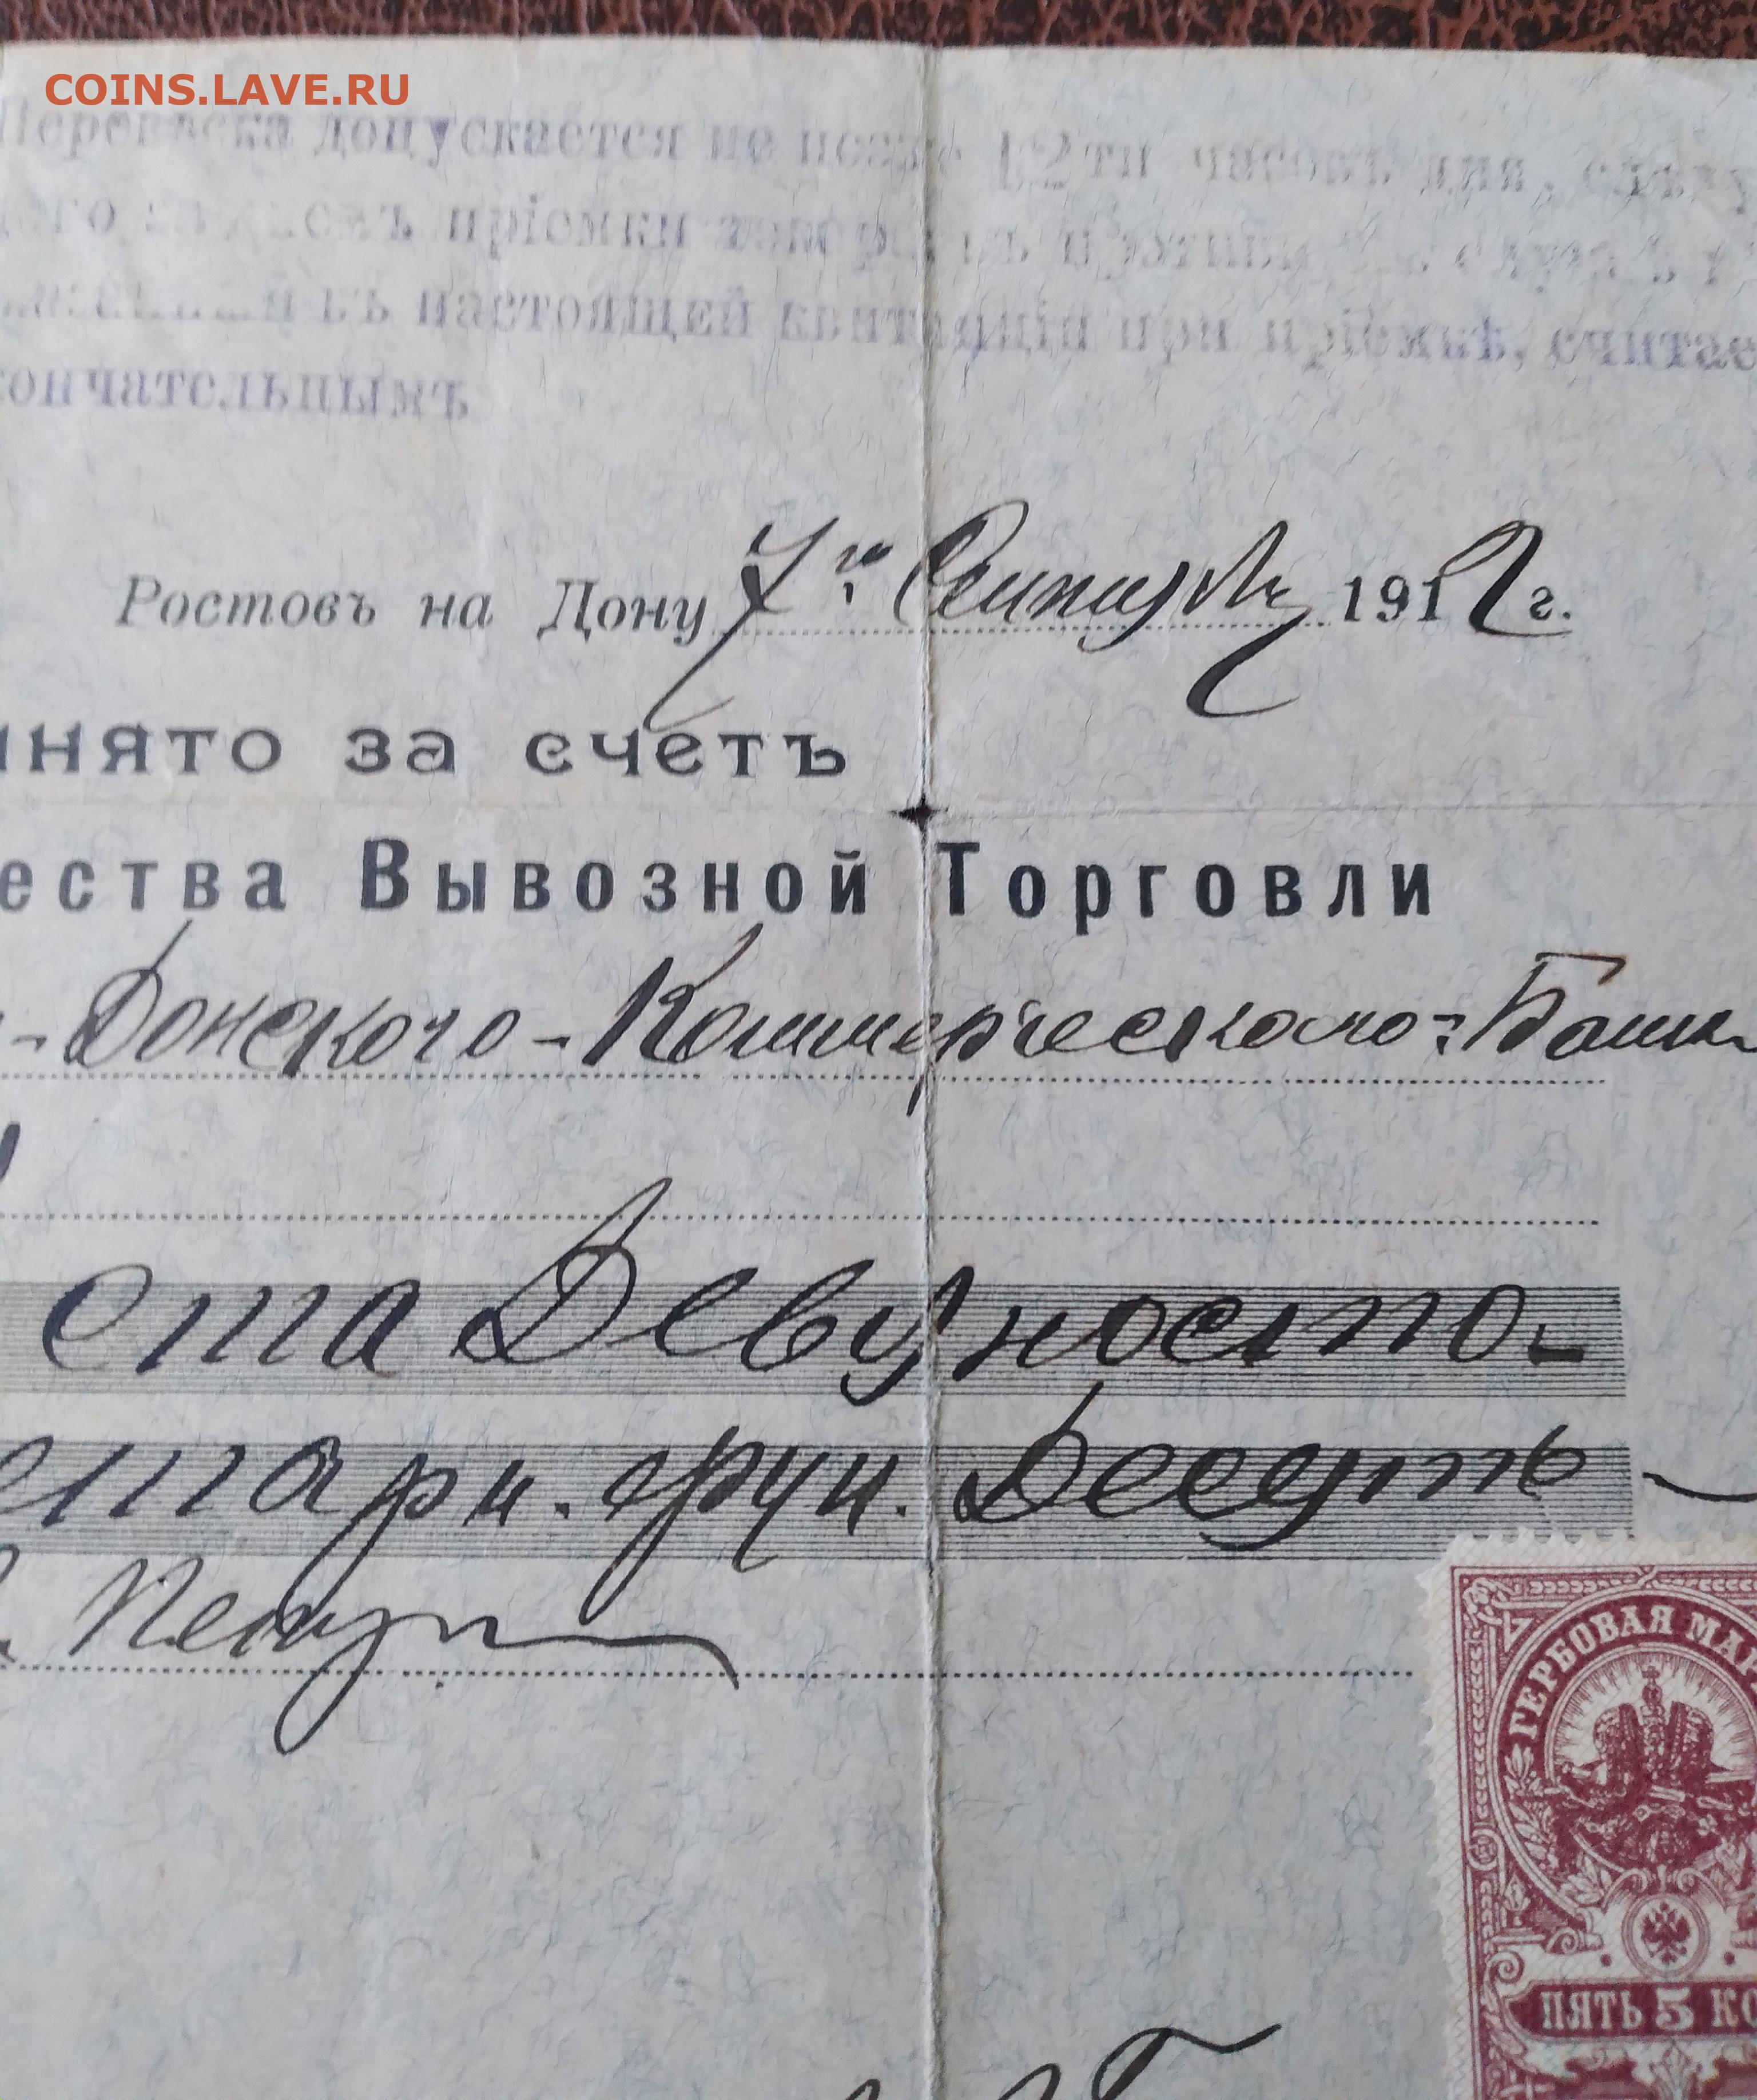 COINS.LAVE.RU
Перевѣска допускается не позже 12ти часовъ дня, слѣду
пріемки товара въ противн случаѣ
въ настоящей квитанціи при пріемкѣ, считае
ончательнымъ
Ростовъ на Дону 7го Сентября 1912 г.
инято за счетъ
ества Вывозной Торговли
- Донского - Коммерческого - Банк
ста Девуносто-
етари. фун. Десять
ГЕРБОВАЯ МАР
ПЯТЬ 5 КО